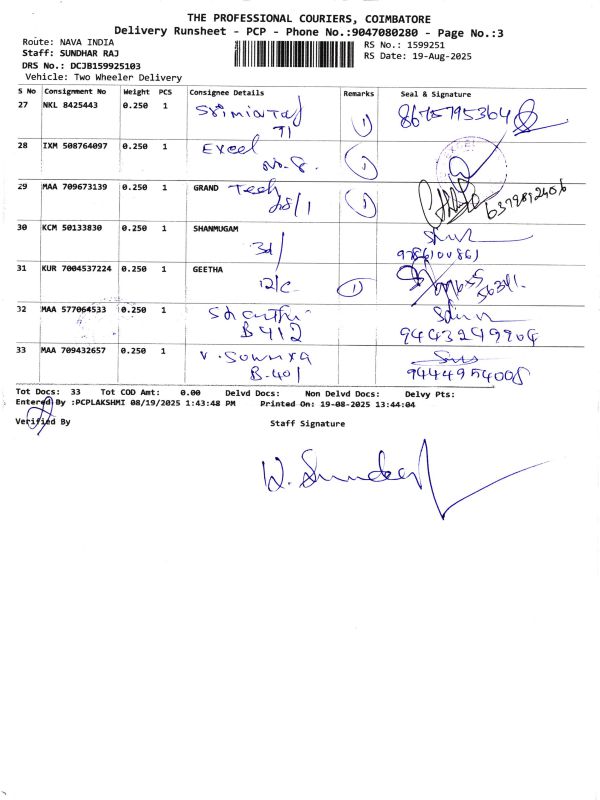 THE PROFESSIONAL COURIERS, COIMBATORE
Delivery Runsheet - PCP - Phone No.:9047080280 - Page No.:3
Route: NAVA INDIA
Staff: SUNDHAR RAJ
DRS No.: DCJB159925103
Vehicle: Two Wheeler Delivery
RS No.: 1599251
RS Date: 19-Aug-2025
S No Consignment No Weight PCS Consignee Details Remarks Seal & Signature
27 NKL 8425443 0.250 1 71 1
28 IXM 508764097 0.250 1 Excel No. 8. 1
29 MAA 709673139 0.250 1 GRAND Tech 1 6379892406
30 KCM 50133830 0.250 1 SHANMUGAM 3d/
31 KUR 7004537224 0.250 1 GEETHA 12/c 1
32 MAA 577064533 0.250 1 B412 9443249904
33 MAA 709432657 0.250 1 V. Sowmya B.401 9444954005
Tot Docs: 33 Tot COD Amt: 0.00 Delvd Docs: Non Delvd Docs: Delvy Pts:
Entered By :PCPLAKSHMI 08/19/2025 1:43:48 PM Printed On: 19-08-2025 13:44:04
Verified By Staff Signature